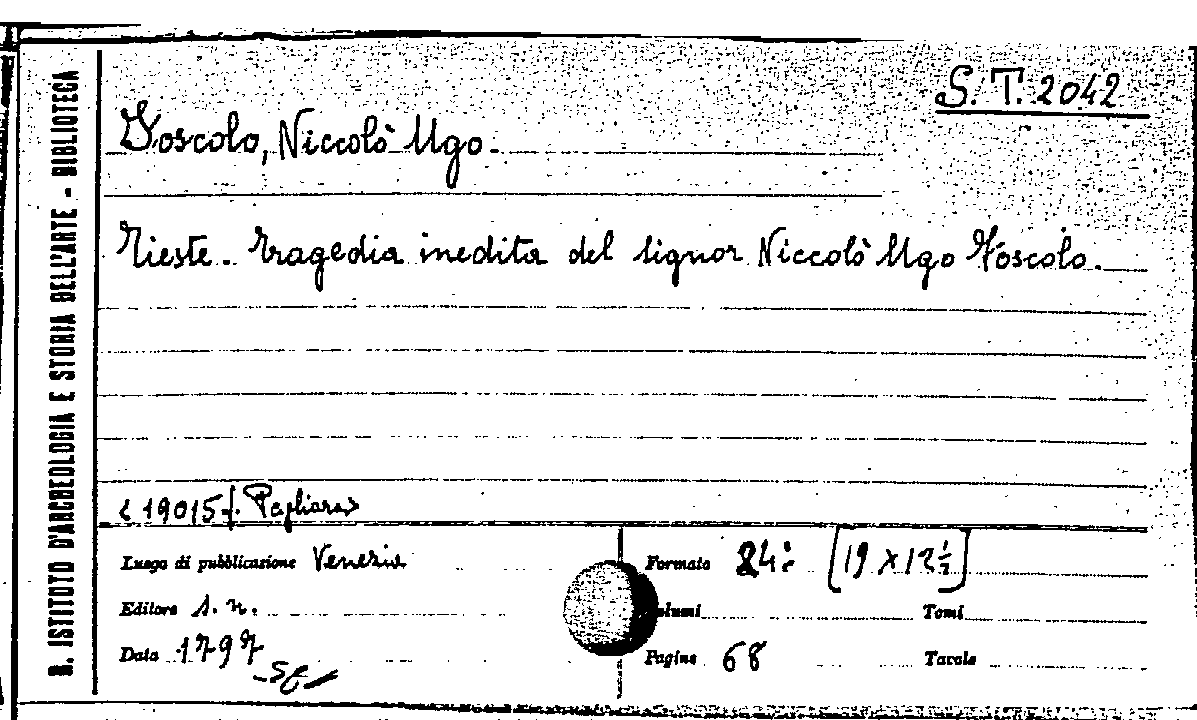 R. ISTITUTO D'ARCHEOLOGIA E STORIA DELL'ARTE - BIBLIOTECA
S. T. 2042
Foscolo, Niccolò Ugo.
Tieste. Tragedia inedita del signor Niccolò Ugo Foscolo.
<19015 f. Pagliara>
Luogo di pubblicazione Venezia
Formato 24º [19 X 12 ½]
Editore s. n.
Volumi Tomi
Data 1797
Pagine 68 Tavole